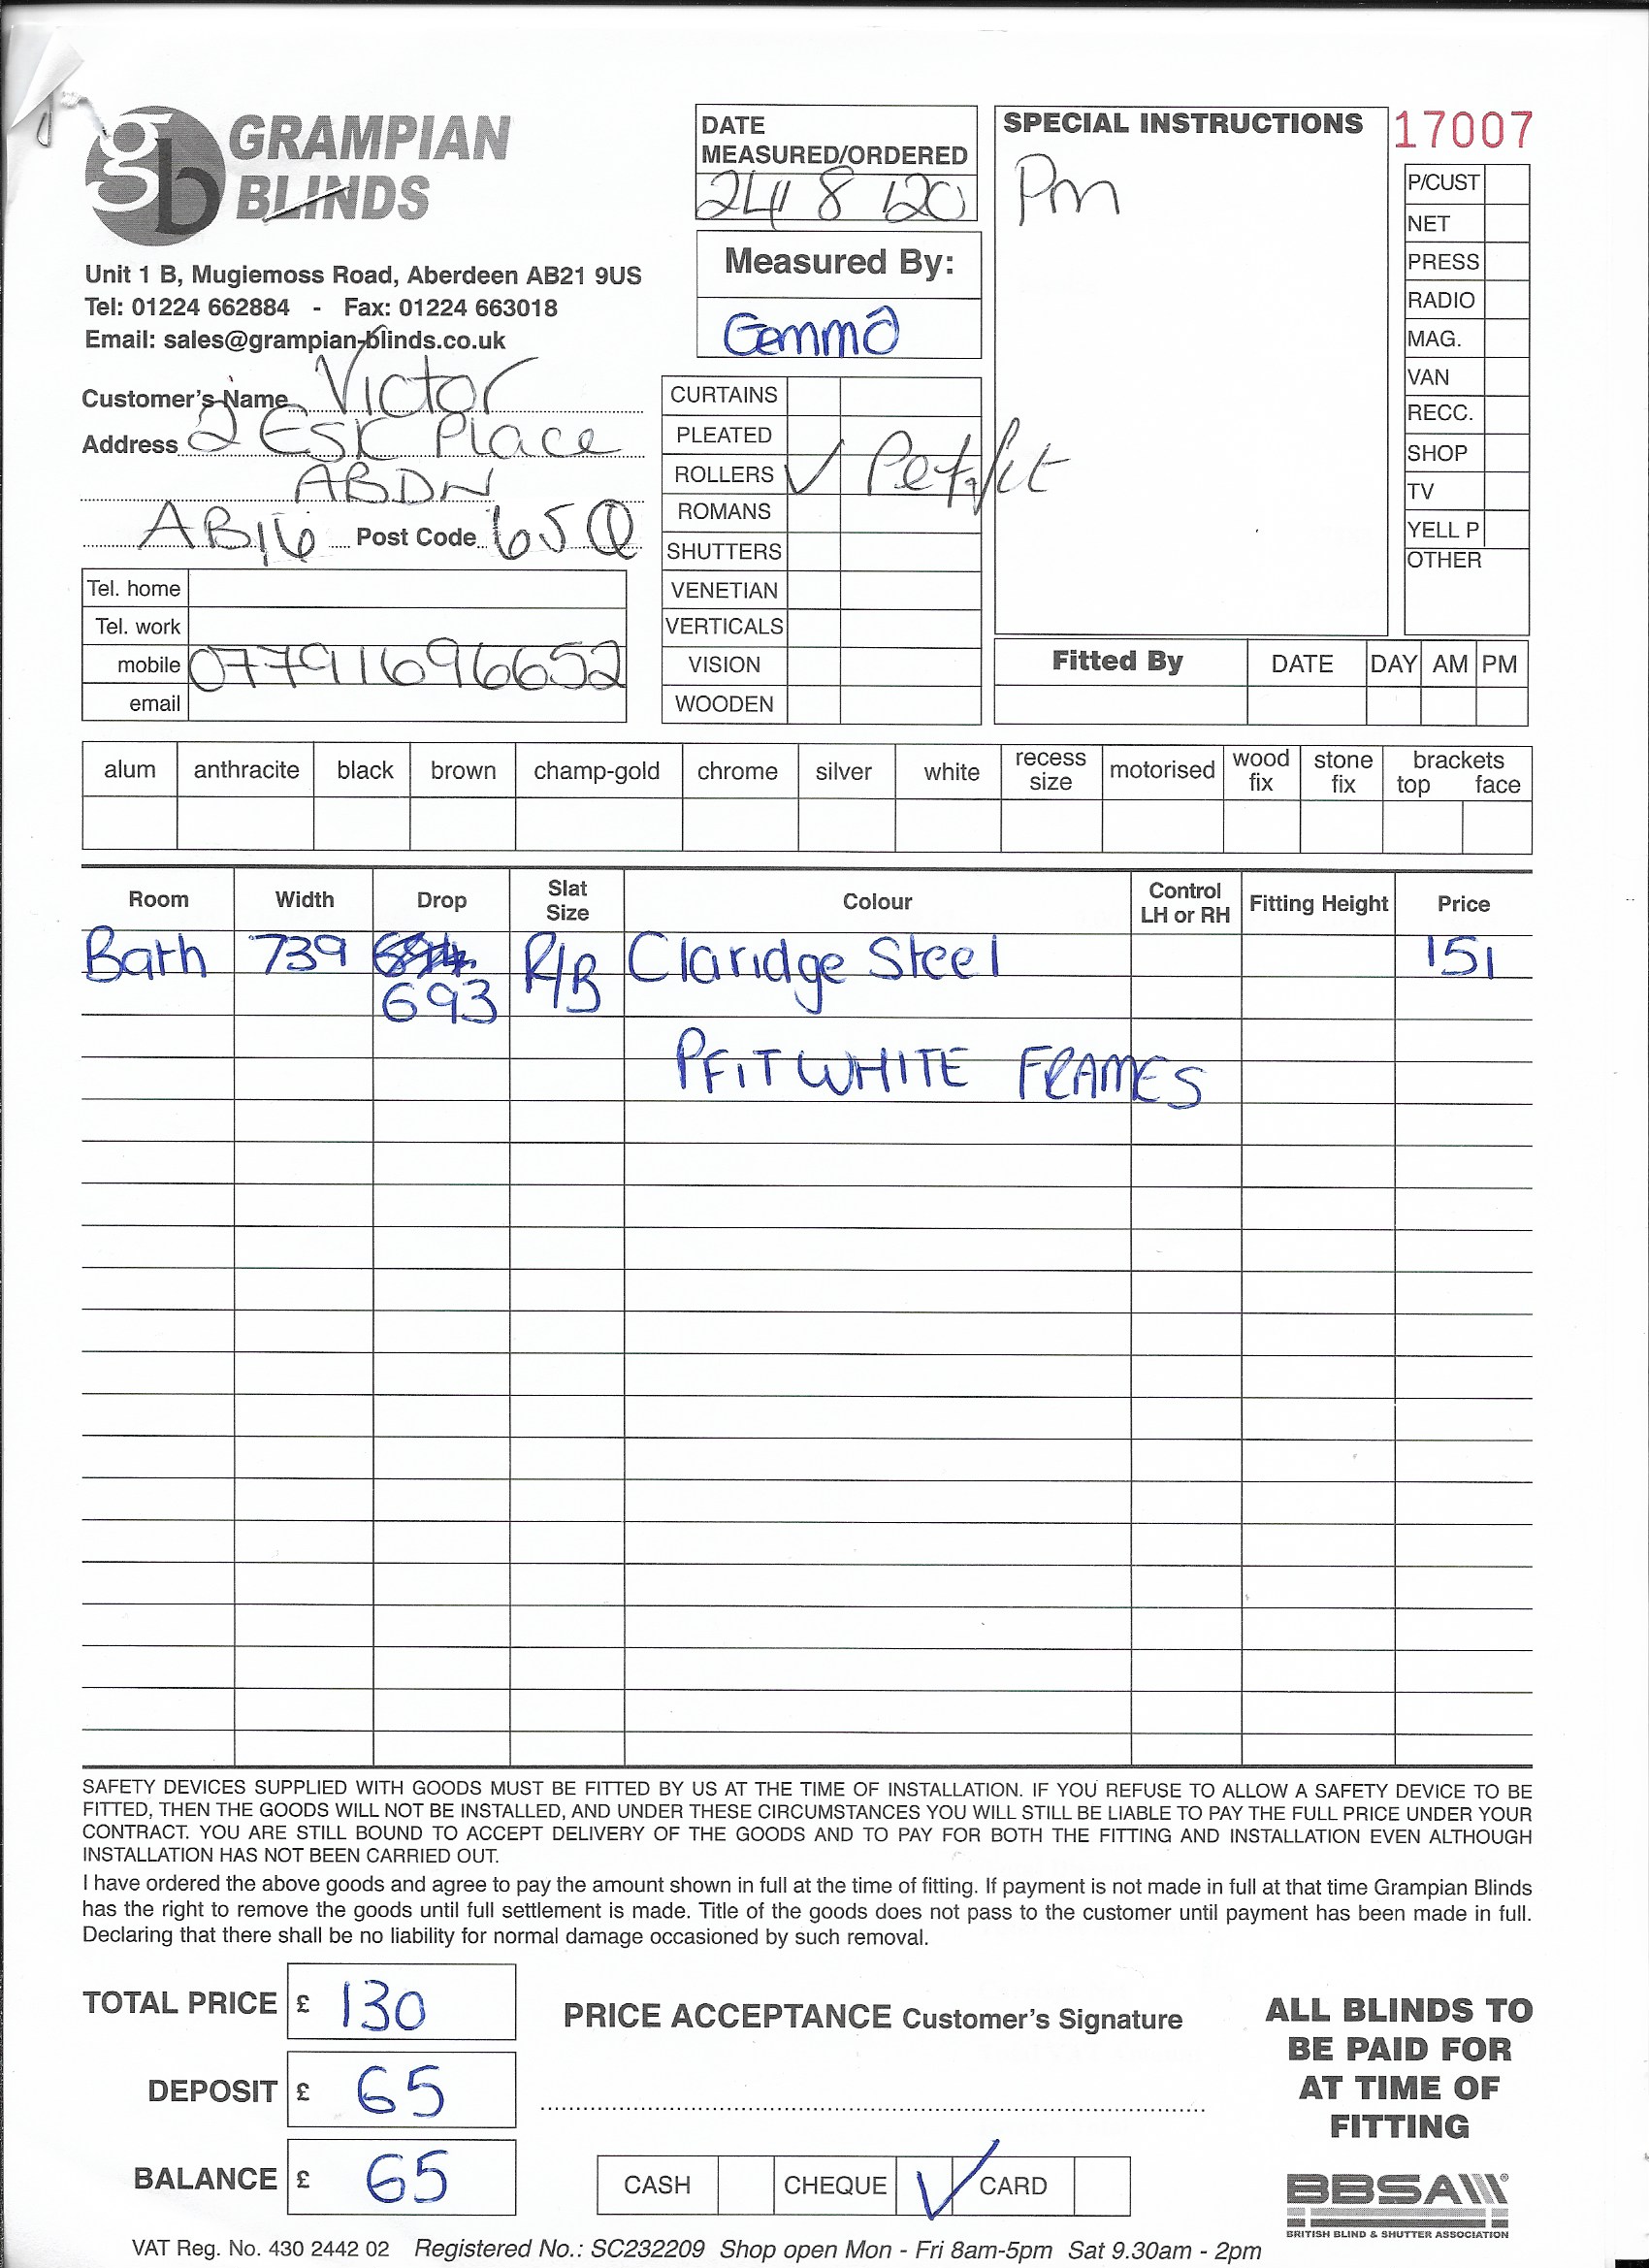 gb GRAMPIAN
BLINDS
Unit 1 B, Mugiemoss Road, Aberdeen AB21 9US
Tel: 01224 662884 - Fax: 01224 663018
Email: sales@grampian-blinds.co.uk
Customer's Name Victor
Address 2 Esk Place
ABDN
AB16 Post Code 6SQ
Tel. home
Tel. work
mobile 07791696652
email
DATE
MEASURED/ORDERED
24/8/20
Measured By:
Gemma
CURTAINS
PLEATED
ROLLERS ✓ Perfit
ROMANS
SHUTTERS
VENETIAN
VERTICALS
VISION
WOODEN
SPECIAL INSTRUCTIONS
Pm
17007
P/CUST
NET
PRESS
RADIO
MAG.
VAN
RECC.
SHOP
TV
YELL P
OTHER
Fitted By DATE DAY AM PM
alum anthracite black brown champ-gold chrome silver white recess size motorised wood fix stone fix brackets top face
Room Width Drop Slat Size Colour Control LH or RH Fitting Height Price
Bath 739 R/B Claridge Steel 151
693
PFIT WHITE FRAMES
SAFETY DEVICES SUPPLIED WITH GOODS MUST BE FITTED BY US AT THE TIME OF INSTALLATION. IF YOU REFUSE TO ALLOW A SAFETY DEVICE TO BE
FITTED, THEN THE GOODS WILL NOT BE INSTALLED, AND UNDER THESE CIRCUMSTANCES YOU WILL STILL BE LIABLE TO PAY THE FULL PRICE UNDER YOUR
CONTRACT. YOU ARE STILL BOUND TO ACCEPT DELIVERY OF THE GOODS AND TO PAY FOR BOTH THE FITTING AND INSTALLATION EVEN ALTHOUGH
INSTALLATION HAS NOT BEEN CARRIED OUT.
I have ordered the above goods and agree to pay the amount shown in full at the time of fitting. If payment is not made in full at that time Grampian Blinds
has the right to remove the goods until full settlement is made. Title of the goods does not pass to the customer until payment has been made in full.
Declaring that there shall be no liability for normal damage occasioned by such removal.
TOTAL PRICE £ 130
DEPOSIT £ 65
BALANCE £ 65
PRICE ACCEPTANCE Customer's Signature
CASH CHEQUE ✓ CARD
ALL BLINDS TO
BE PAID FOR
AT TIME OF
FITTING
BBSA
BRITISH BLIND & SHUTTER ASSOCIATION
VAT Reg. No. 430 2442 02 Registered No.: SC232209 Shop open Mon - Fri 8am-5pm Sat 9.30am - 2pm